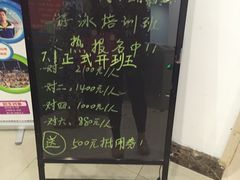 游泳培训班
热报名中!!
7.1正式开班
一对一:2100元/人
一对二:1400元/人
一对四:1000元/人
一对六:880元/人
送 500元抵用券!